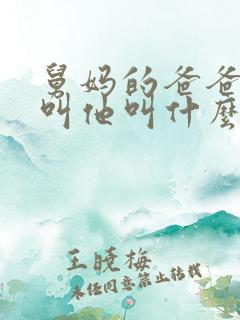 舅妈的爸爸
叫他叫什麽
王晓梅
未经同意禁止转载